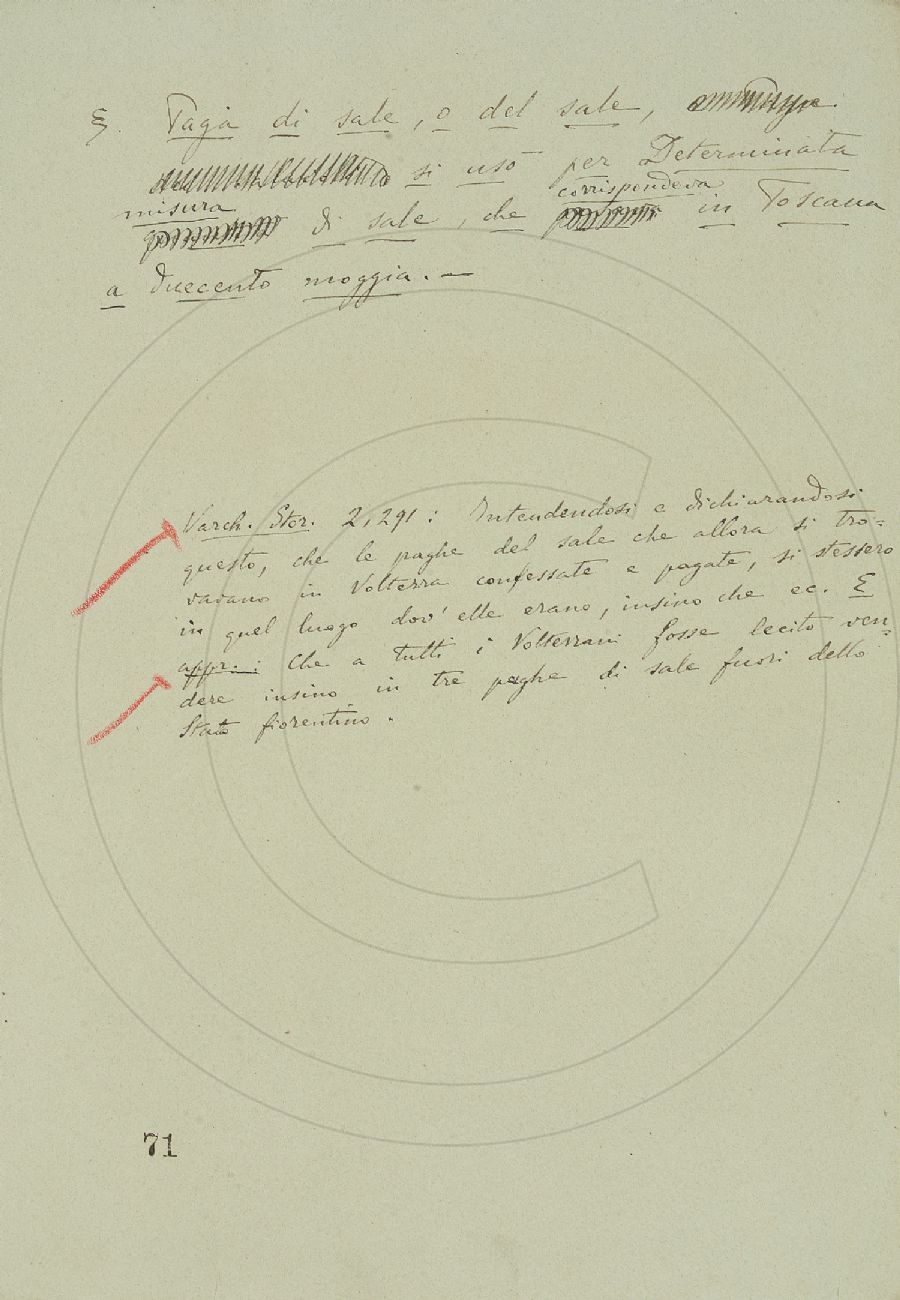 §. Paga di sale, o del sale,
si usò per Determinata
misura di sale, che corrispondeva in Toscana
a duecento moggia. —
Varch. Stor. 2, 291: Intendendosi e dichiarandosi
questo, che le paghe del sale che allora si tro=
vavano in Volterra confessate e pagate, si stessero
in quel luogo dov' elle erano, insino che ec. E
appr.: Che a tutti i Volterrani fosse lecito ven=
dere insino in tre paghe di sale fuori dello
Stato fiorentino.
71